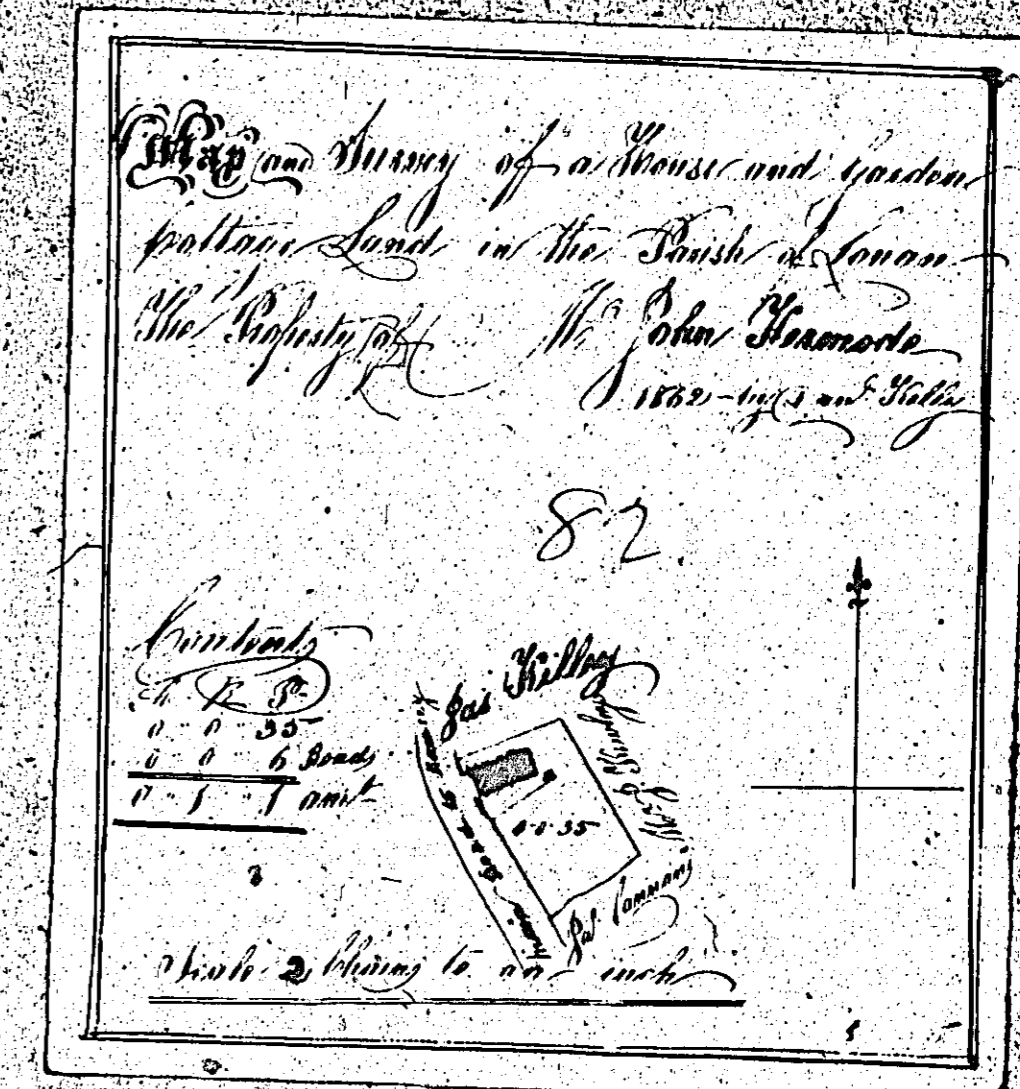 Map and Survey of a House and Garden
Cottage Land in the Parish of Lonan
The Property of Mr John Kermode
1862 - by and Kelly
82
Contents
A R P
0 " 0 " 35
0 0 6 Roads
0 " 1 " 1 amt
Jas Killey
0-0-35
Main Road to Ramsey
Jas Cannans
Scale 2 Chains to an inch